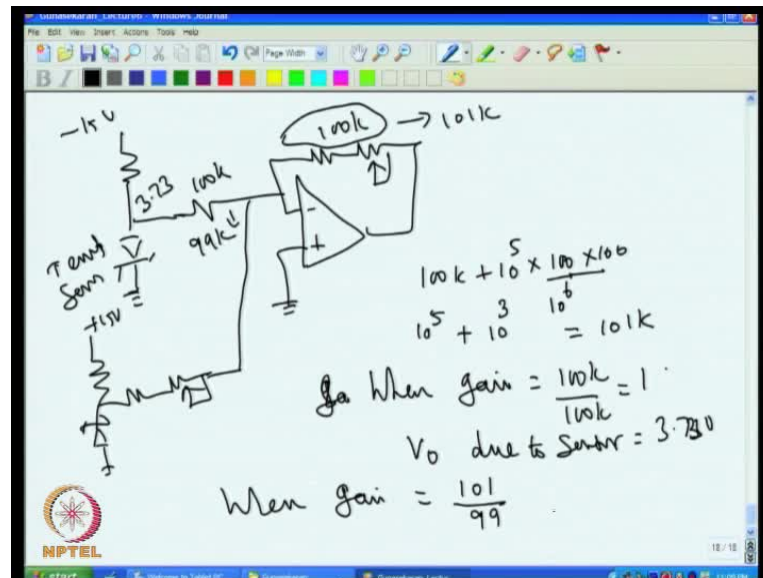 Gunasekaran_Lecture6 - Windows Journal
File Edit View Insert Actions Tools Help
Page Width
B I
-15V
100k → 101k
3.73 100k
99k
Temp
Sens
+15V
-
+
100k + 10^5 × 100 × 100 / 10^6
10^5 + 10^3 = 101k
When gain = 100k / 100k = 1
Vo due to sensor = 3.730
When gain = 101 / 99
NPTEL
18 / 18
start